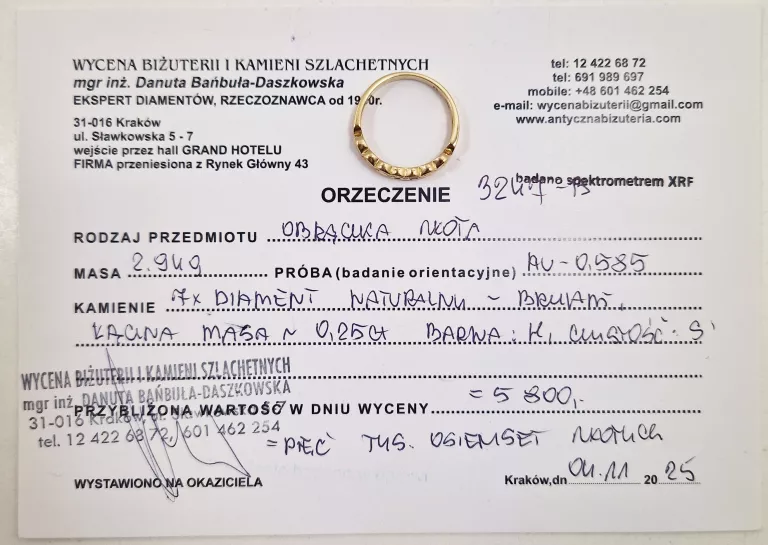 WYCENA BIŻUTERII I KAMIENI SZLACHETNYCH
mgr inż. Danuta Bańbuła-Daszkowska
EKSPERT DIAMENTÓW, RZECZOZNAWCA od
31-016 Kraków
ul. Sławkowska 5 - 7
wejście przez hall GRAND HOTELU
FIRMA przeniesiona z Rynek Główny 43
tel: 12 422 68 72
tel: 691 989 697
mobile: +48 601 462 254
e-mail: wycenabizuterii@gmail.com
www.antycznabizuteria.com
badano spektrometrem XRF
ORZECZENIE
RODZAJ PRZEDMIOTU OBRĄCZKA ZŁOTA
MASA 2.94g PRÓBA (badanie orientacyjne) AU-0,585
KAMIENIE 7x DIAMENT NATURALNY ~ BRYLANT,
ŁĄCZNA MASA ~ 0,25ct BARWA: H, CZYSTOŚĆ: SI
WYCENA BIŻUTERII I KAMIENI SZLACHETNYCH
mgr inż. DANUTA BAŃBUŁA-DASZKOWSKA
31-016 Kraków, ul. Sławkowska 5-7
tel. 12 422 68 72, 601 462 254
PRZYBLIŻONA WARTOŚĆ W DNIU WYCENY = 5 800,-
= PIĘĆ TYS. OSIEMSET ZŁOTYCH
WYSTAWIONO NA OKAZICIELA
Kraków,dn 04.11 2025